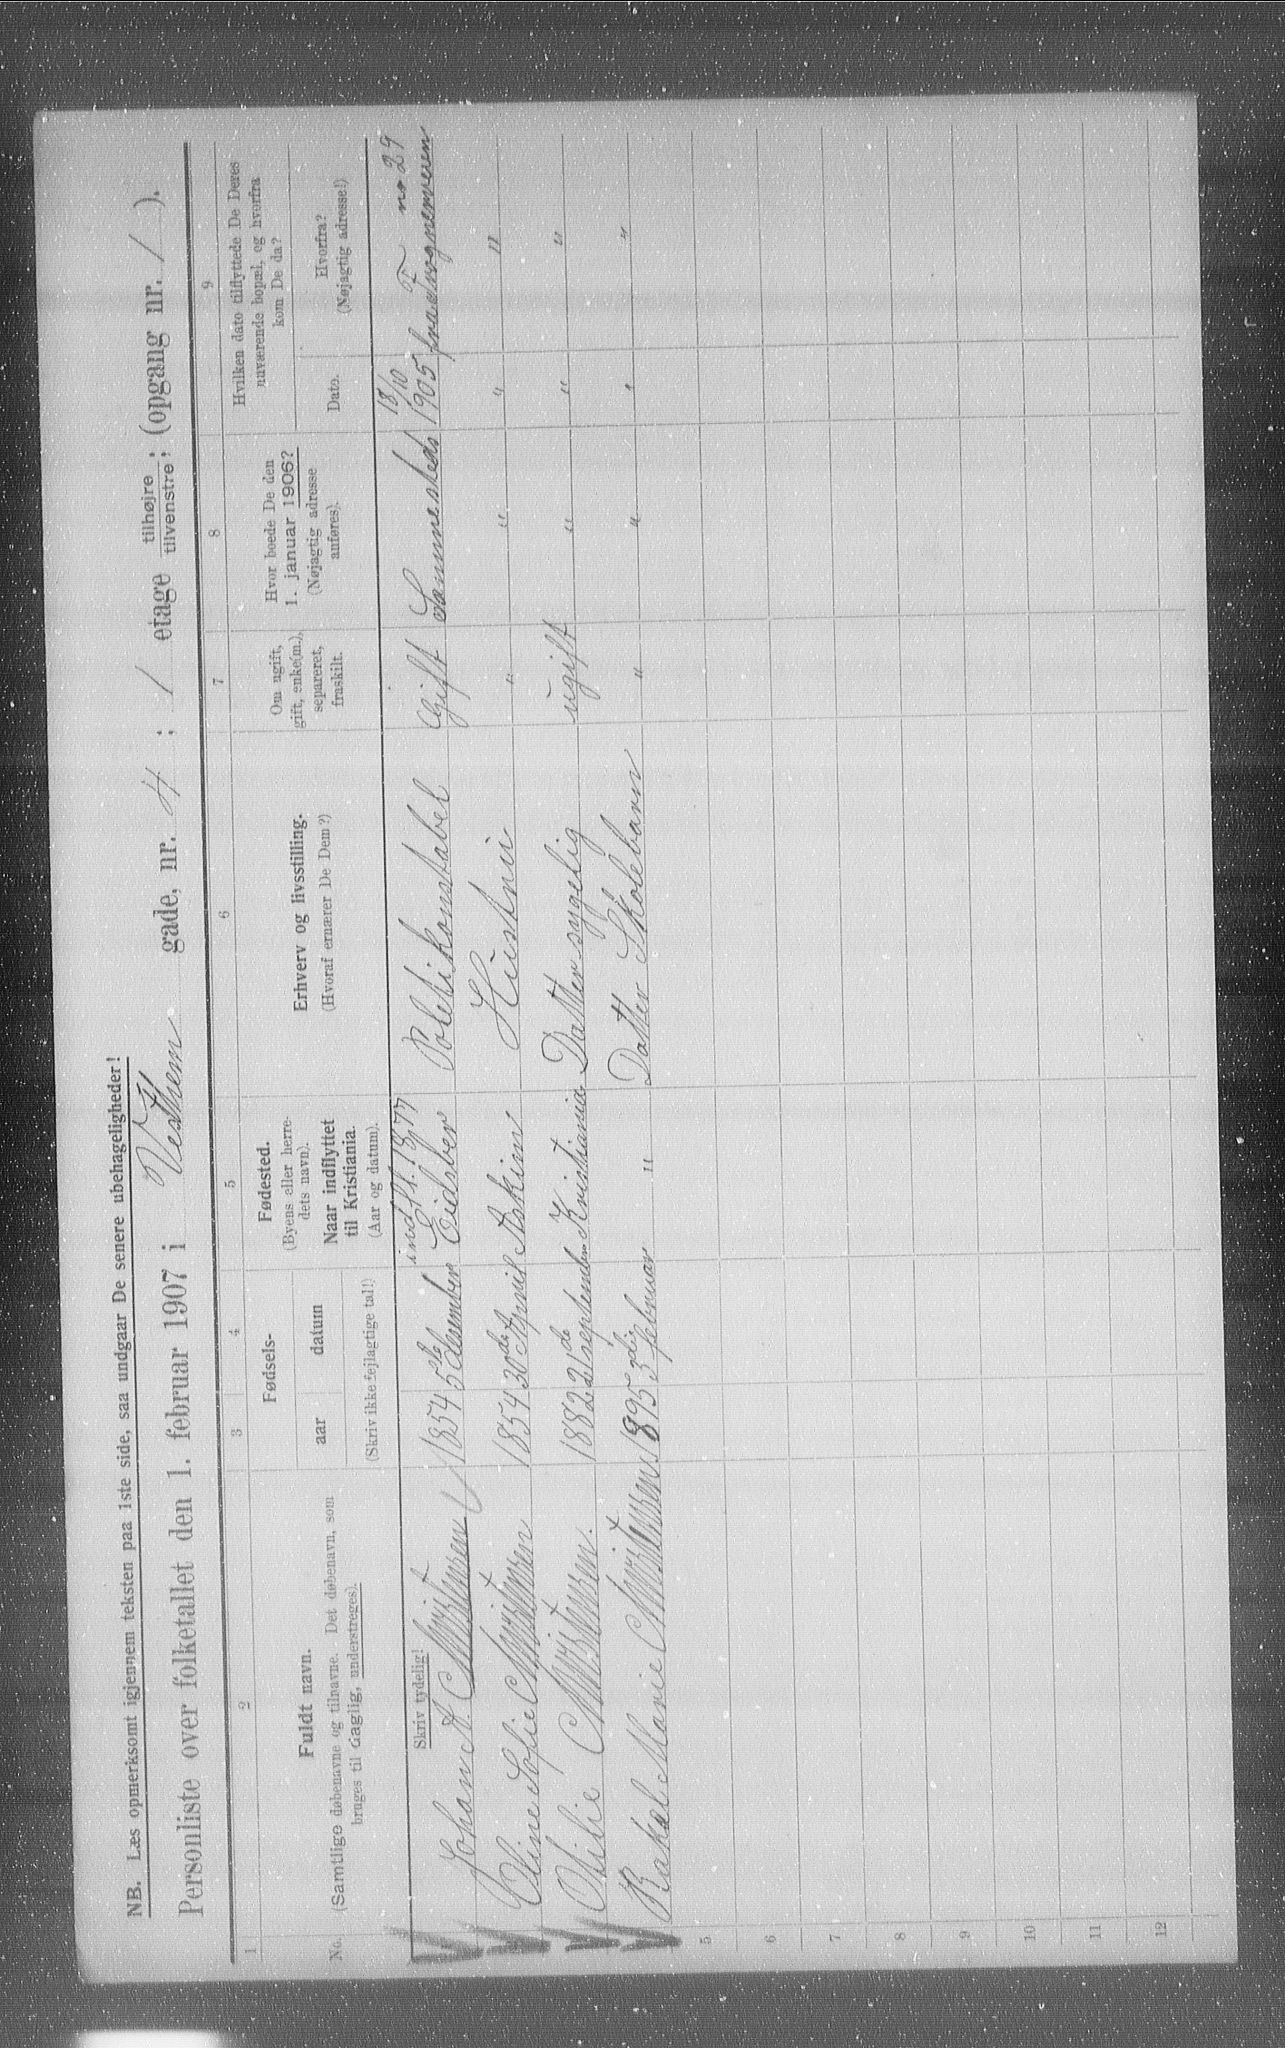 NB. Læs opmerksomt igjennem teksten paa 1ste side, saa undgaar De senere ubehageligheder!
Personliste over folketallet den 1. februar 1907 i Vestheim gade, nr. 4 ; 1 etage tilhøjre, tilvenstre; (opgang nr. 1 ).
1 2 3 4 5 6 7 8 9
No.
Fuldt navn.
(Samtlige døbenavne og tilnavne. Det døbenavn, som
bruges til daglig, understreges).
Fødsels-
aar datum
(Skriv ikke fejlagtige tal!)
Fødested.
(Byens eller herre-
dets navn).
Naar indflyttet
til Kristiania.
(Aar og datum).
Erhverv og livsstilling.
(Hvoraf ernærer De Dem?)
Om ugift,
gift, enke(m.),
separeret,
fraskilt.
Hvor boede De den
1. januar 1906?
(Nøjagtig adresse
anføres).
Hvilken dato tilflyttede De Deres
nuværende bopæl, og hvorfra
kom De da?
Dato.
Hvorfra?
(Nøjagtig adresse!)
Skriv tydelig!
indfl. 1877 18/10 no 29
Johan A. Christensen 1854 5te desember Eidsber Politikonstabel Gift Sammesteds 1905 fra Frognerveien
Oline Sofie Christensen 1854 30de April Askim Hustru " " " "
Otilie Christensen. 1882 21de september Kristiania Datter sygelig ugift " " "
Rakel Marie Christensen 1895 3die februar " Datter Skolebarn " " " "
5
6
7
8
9
10
11
12